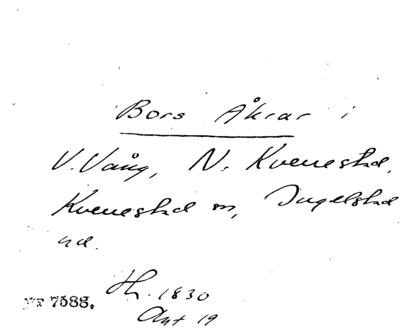 Bors Åkrar i
V. Vång, N. Kvenestad,
Kvenestad sn, Ingelstad
hd.
Hh. 1830
Akt 19
7588.